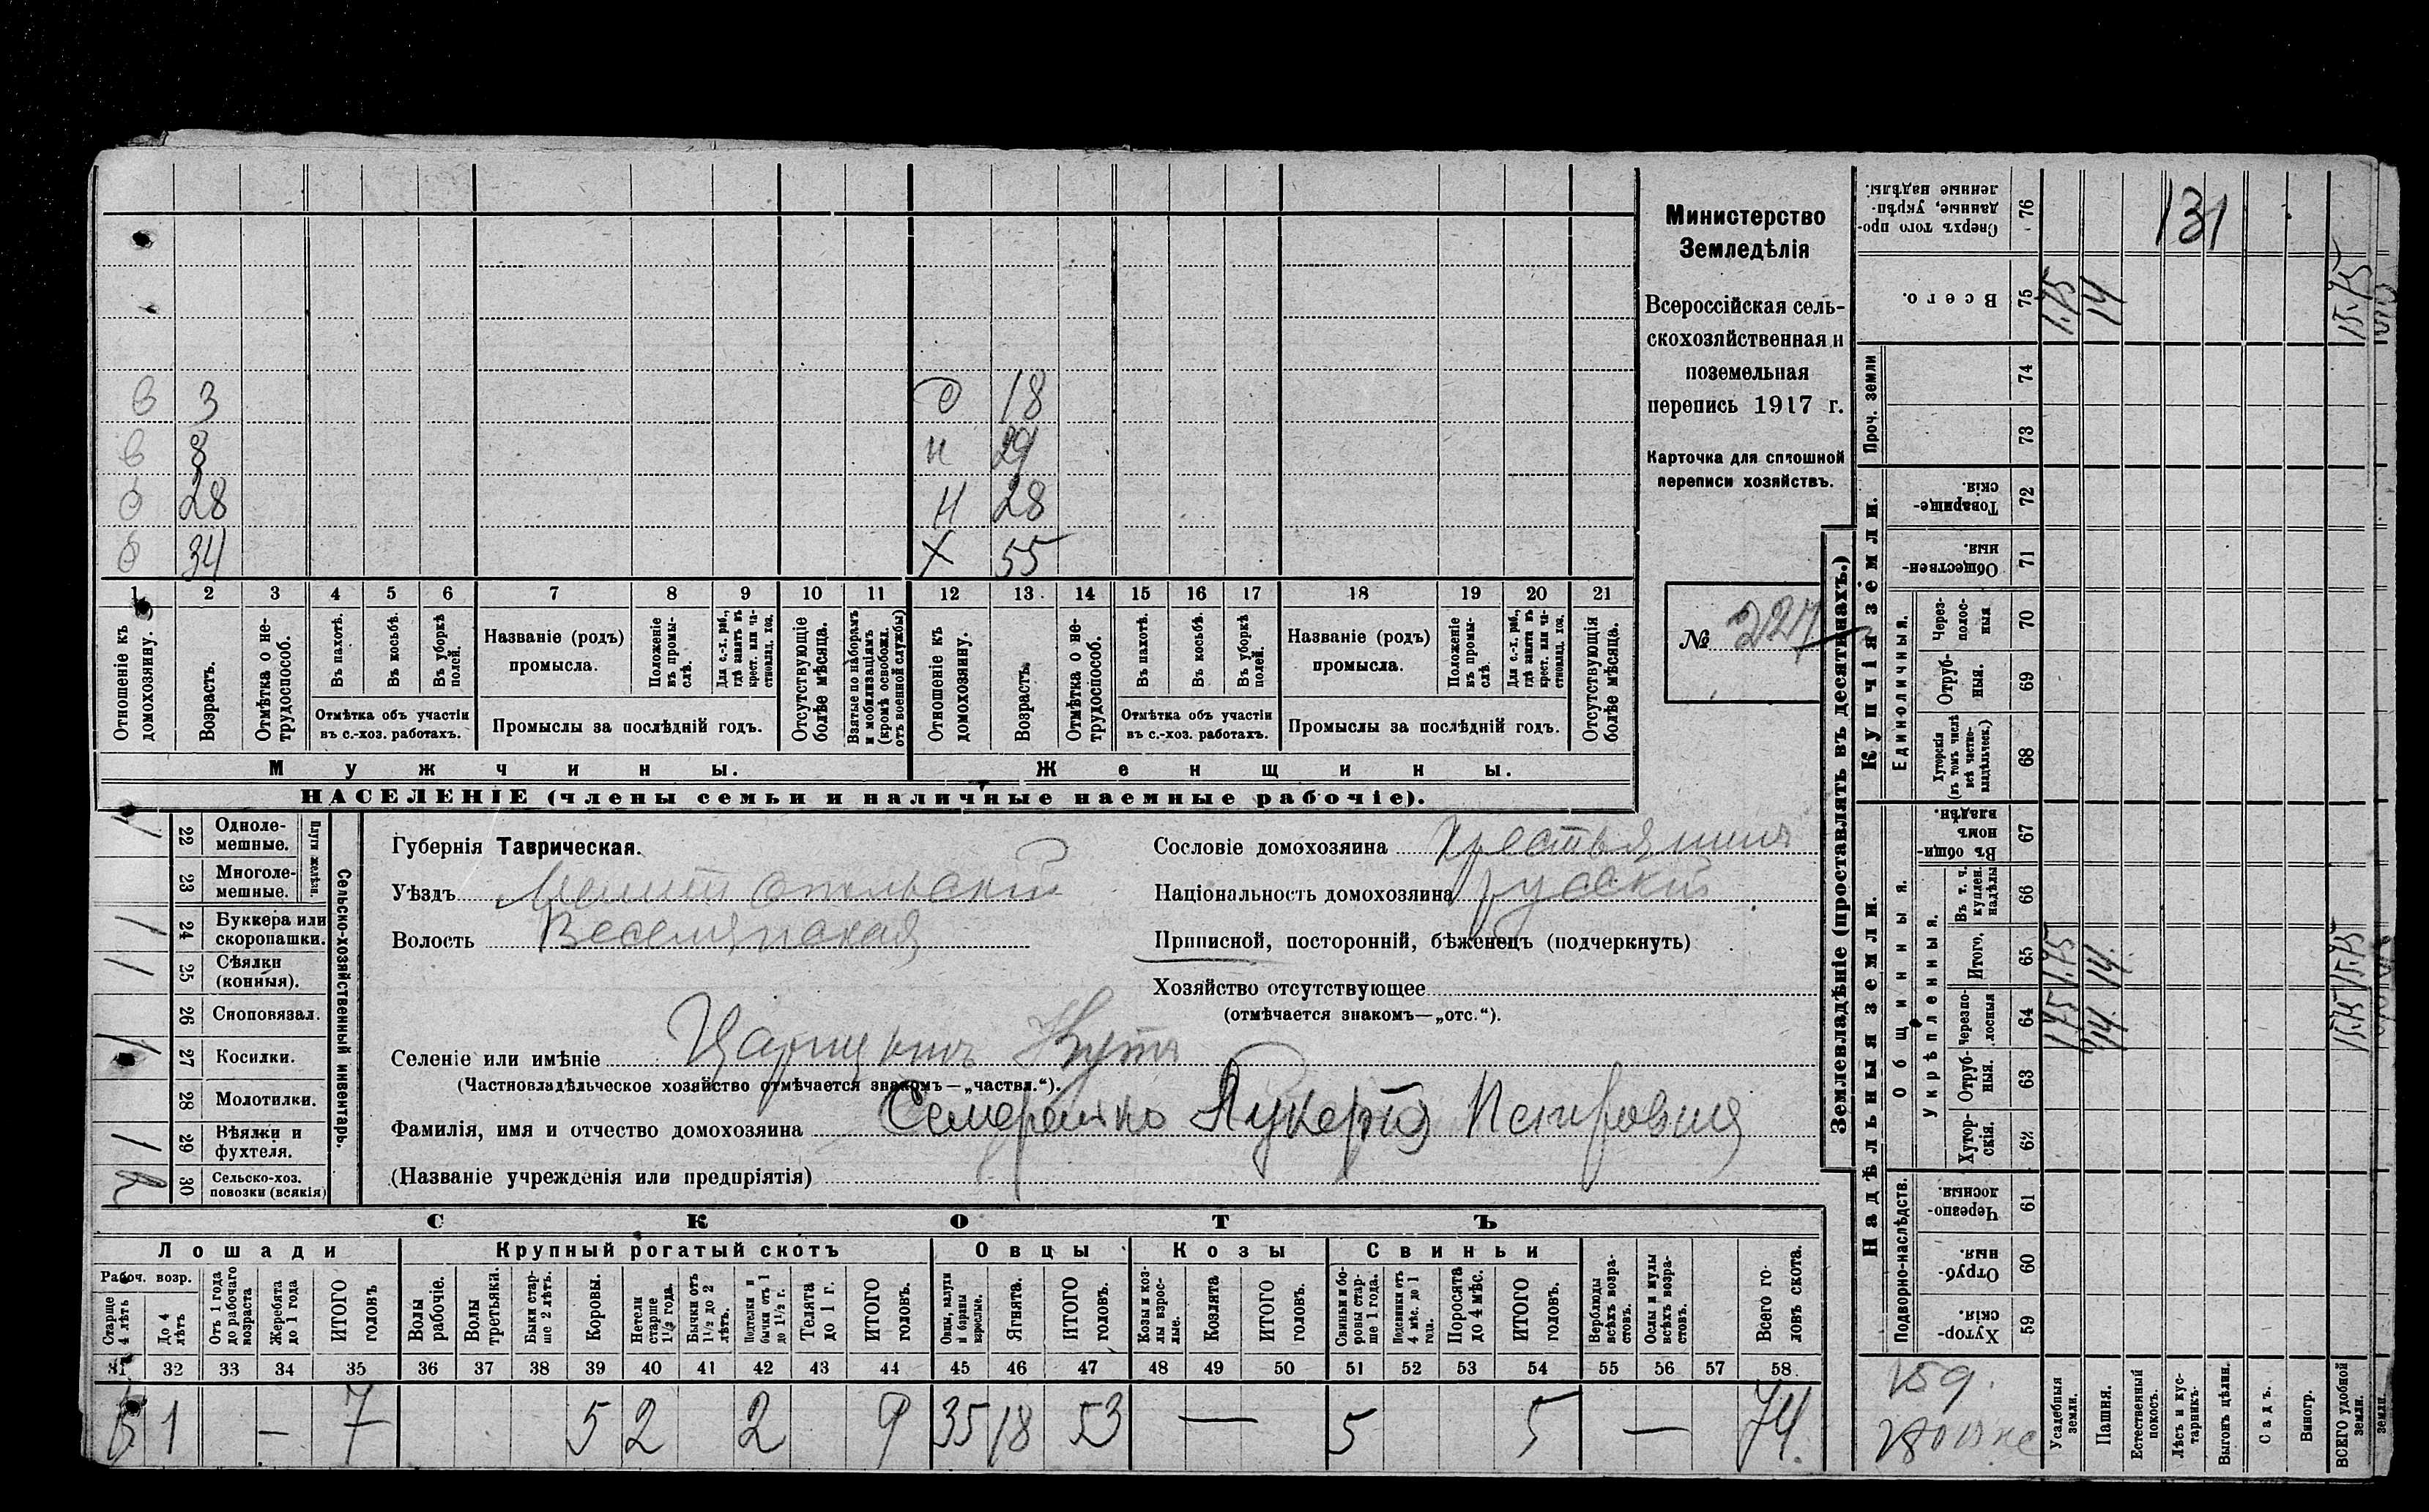 Министерство
Земледѣлія
Всероссійская сель-
скохозяйственная и
поземельная
перепись 1917 г.
Карточка для сплошной
переписи хозяйствъ.
№ 227
131
в 3 О 18
в 8 н 29
с 28 н 28
с 34 Х 55
1 2 3 4 5 6 7 8 9 10 11 12 13 14 15 16 17 18 19 20 21
Отношеніе къ домохозяину.
Возрастъ.
Отмѣтка о не-трудоспособ.
Въ пахотѣ.
Въ косьбѣ.
Въ уборкѣ полей.
Отмѣтка объ участіи въ с.-хоз. работахъ.
Названіе (родъ) промысла.
Положеніе въ промы-слѣ.
Для с.-х. раб., гдѣ занятъ въ крест. или ча-стновлад. хоз.
Промыслы за послѣдній годъ.
Отсутствующіе болѣе мѣсяца.
Взятые по наборамъ и мобилизаціямъ (кромѣ освобожд. отъ военной службы)
Отношеніе къ домохозяину.
Возрастъ.
Отмѣтка о не-трудоспособ.
Въ пахотѣ.
Въ косьбѣ.
Въ уборкѣ полей.
Отмѣтка объ участіи въ с.-хоз. работахъ.
Названіе (родъ) промысла.
Положеніе въ промы-слѣ.
Для с.-х. раб., гдѣ занята въ крест. или ча-стновлад. хоз.
Промыслы за послѣдній годъ.
Отсутствующія болѣе мѣсяца.
Мужчины. Женщины.
НАСЕЛЕНІЕ (члены семьи и наличные наемные рабочіе).
Сельско-хозяйственный инвентарь.
Плуги желѣзн.
22 Одноле-мешные. 1
23 Многоле-мешные.
24 Буккера или скоропашки. 1
25 Сѣялки (конныя). 1
26 Сноповязал.
27 Косилки. 1
28 Молотилки.
29 Вѣялки и фухтеля. 1
30 Сельско-хоз. повозки (всякія) 2
Губернія Таврическая.
Уѣздъ Мелитопольскій
Волость Веселянская
Сословіе домохозяина крестьянинъ
Національность домохозяина русскій
Приписной, посторонній, бѣженецъ (подчеркнуть)
Хозяйство отсутствующее
(отмѣчается знакомъ—„отс.“).
Селеніе или имѣніе Царицынъ Кутъ
(Частновладѣльческое хозяйство отмѣчается знакомъ—„частвл.“).
Фамилія, имя и отчество домохозяина Семеренко Лукерія Петровна
(Названіе учрежденія или предпріятія)
СКОТЪ
Лошади Крупный рогатый скотъ Овцы Козы Свиньи
Рабоч. возр.
Старше 4 лѣтъ
До 4 лѣтъ
Отъ 1 года до рабочаго возраста
Жеребята до 1 года
ИТОГО головъ
Волы рабочіе.
Волы третьяки.
Быки стар-ше 2 лѣтъ.
Коровы.
Нетели старше 1½ года.
Бычки отъ 1½ до 2 лѣтъ.
Подтелки и бычки отъ 1 до 1½ г.
Телята до 1 г.
ИТОГО головъ.
Овцы, валухи и бараны взрослые.
Ягнята.
ИТОГО головъ.
Козы и коз-лы взрос-лые.
Козлята
ИТОГО головъ.
Свиньи и бо-ровы стар-ше 1 года.
Подсвинки отъ 4 мѣс. до 1 года.
Поросята до 4 мѣс.
ИТОГО головъ.
Верблюды всѣхъ возра-стовъ.
Ослы и мулы всѣхъ возра-стовъ.
Всего го-ловъ скота.
31 32 33 34 35 36 37 38 39 40 41 42 43 44 45 46 47 48 49 50 51 52 53 54 55 56 57 58
6 1 — 7 5 2 2 9 35 18 53 — 5 5 — 74
Землевладѣніе (проставлять въ десятинахъ.)
Надѣльныя земли. Купчія земли. Проч. земли
Подворно-наслѣдств.
Общинныя.
Укрѣпленныя.
Единоличныя.
59 Хутор-скія.
60 Отруб-ныя.
61 Черезпо-лосныя
62 Хутор-скія.
63 Отруб-ныя.
64 черезпо-лосныя 1.75 14 15.75
65 Итого. 1.75 14 15.75
66 Въ т. ч. куплен. надѣлы
67 Въ общин-номъ владѣн.
68 Хуторскія (въ томъ числѣ всѣ частно-владѣльческ.)
69 Отруб-ныя.
70 Через-полос-ныя
71 Обществен-ныя.
72 Товарище-скія.
73
74
75 Всего. 1.75 14 15.75
76 Сверхъ того про-данные, укрѣп-ленные надѣлы.
Усадебныя земли.
Пашня.
Естественный покосъ.
Лѣсъ и кус-тарникъ.
Выгонъ цѣлин.
Садъ.
Виногр.
ВСЕГО удобной земли.
земли.